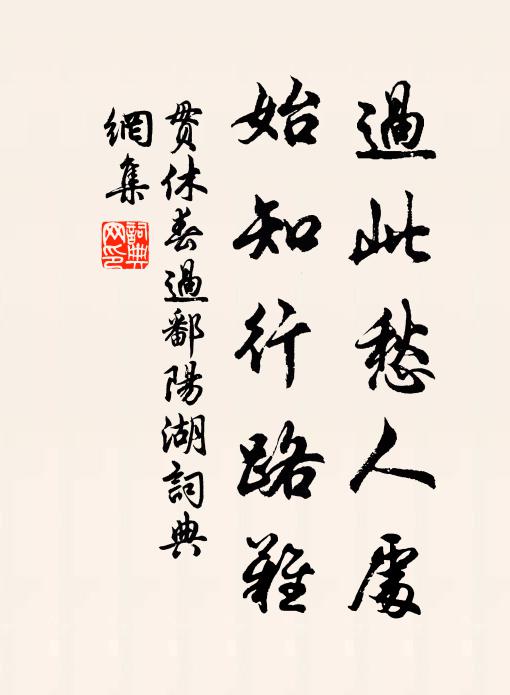 過此愁人處
始知行路難
貫休春過鄱陽湖詞典
網集
詞典
网印